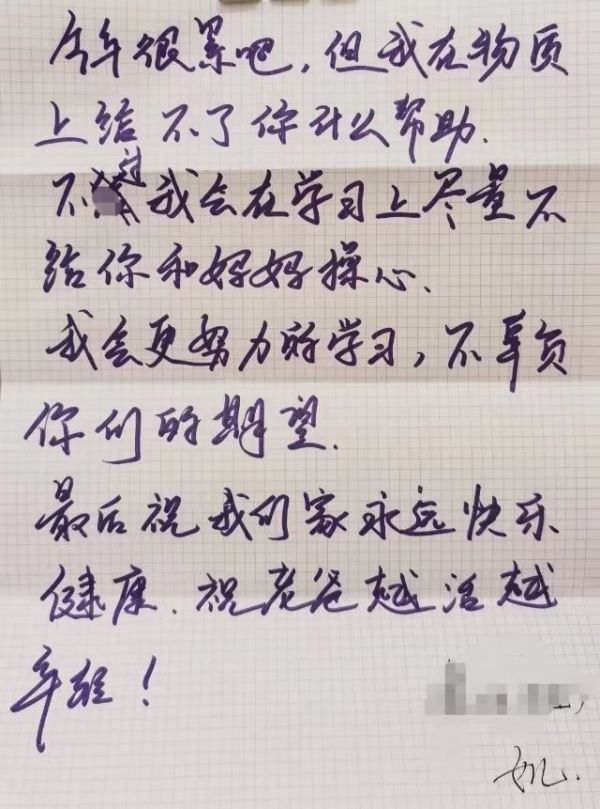 今年很累吧，但我在物质
上给不了你什么帮助.
不过我会在学习上尽量不
给你和妈妈操心.
我会更努力的学习，不辜负
你们的期望.
最后祝我们家永远快乐
健康.祝老爸越活越
年轻！